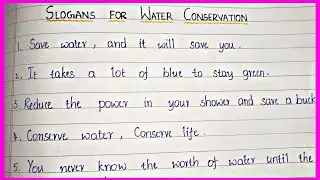 SLOGANS FOR WATER CONSERVATION
1. Save water, and it will save you.
2. It takes a lot of blue to stay green.
3. Reduce the power in your shower and save a buck
4. Conserve water, Conserve life.
5. You never know the worth of water until the